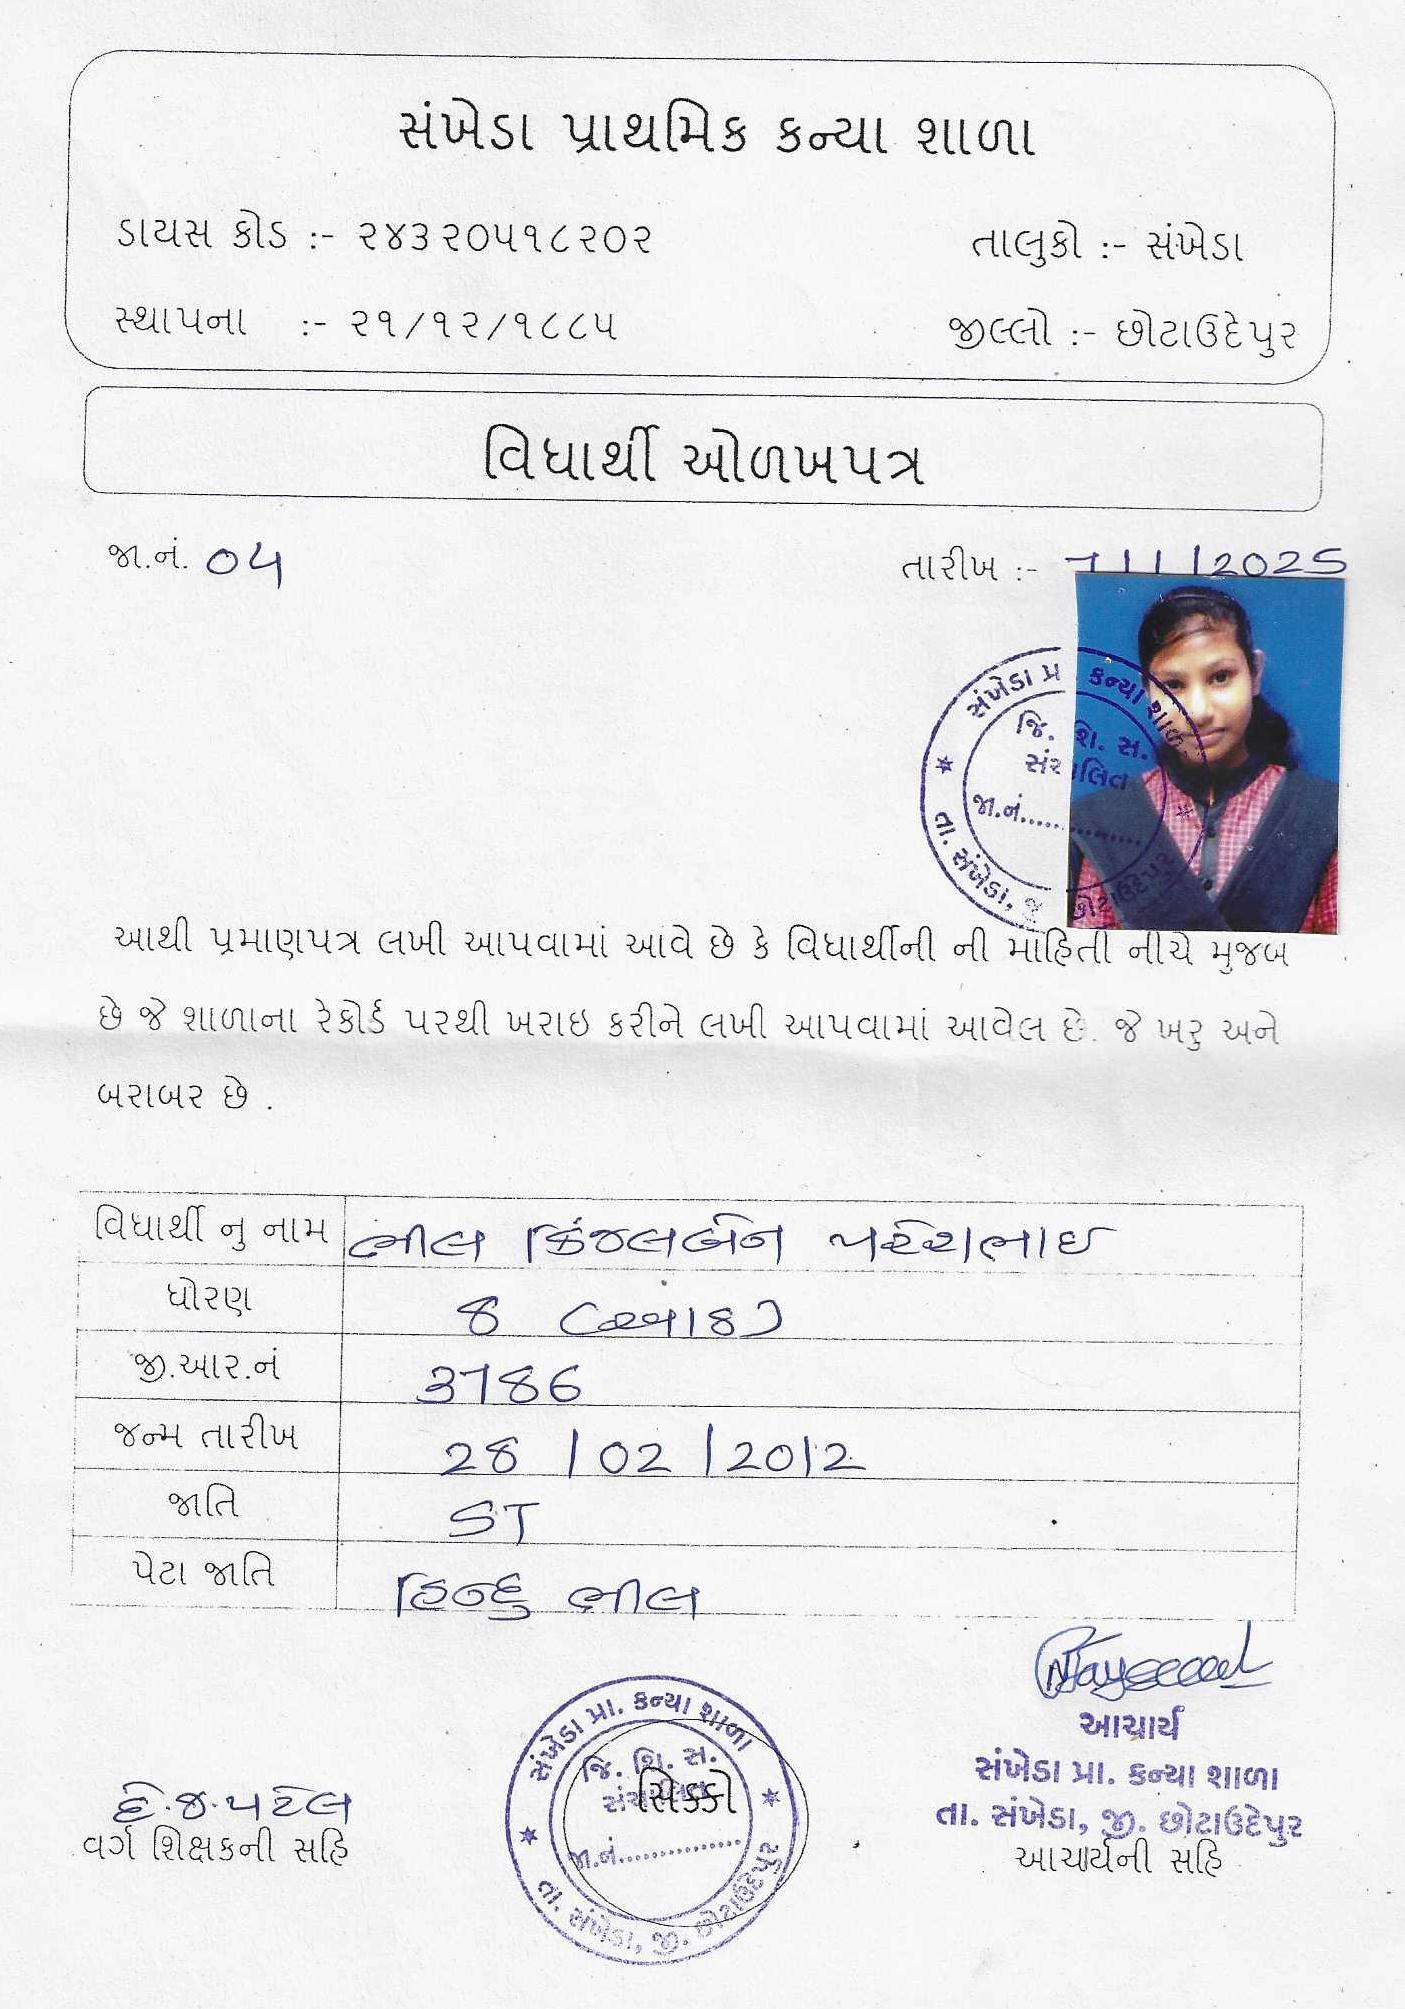 સંખેડા પ્રાથમિક કન્યા શાળા
ડાયસ કોડ :- ૨૪૩૨૦૫૧૮૨૦૨
તાલુકો :- સંખેડા
સ્થાપના :- ૨૧/૧૨/૧૮૮૫
જીલ્લો :- છોટાઉદેપુર
વિધાર્થી ઓળખપત્ર
જા.નં. 04
તારીખ :- 7/1/2025
સંખેડા પ્રા. કન્યા શાળા
જિ. શિ. સ.
સંચાલિત
જા.નં...............
તા. સંખેડા, જી. છોટાઉદેપુર
આથી પ્રમાણપત્ર લખી આપવામાં આવે છે કે વિધાર્થીની ની માહિતી નીચે મુજબ
છે જે શાળાના રેકોર્ડ પરથી ખરાઇ કરીને લખી આપવામાં આવેલ છે. જે ખરુ અને
બરાબર છે .
વિધાર્થી નુ નામ ભીલ કિંજલબેન પરેશભાઇ
ધોરણ 8 (આઠ)
જી.આર.નં 3786
જન્મ તારીખ 28/02/2012
જાતિ ST
પેટા જાતિ હિન્દુ ભીલ
આચાર્ય
સંખેડા પ્રા. કન્યા શાળા
તા. સંખેડા, જી. છોટાઉદેપુર
આચાર્યની સહિ
સંખેડા પ્રા. કન્યા શાળા
જિ. શિ. સ.
સંચાલિત
સિક્કો
જા.નં...............
તા. સંખેડા, જી. છોટાઉદેપુર
જ.પટેલ
વર્ગ શિક્ષકની સહિ